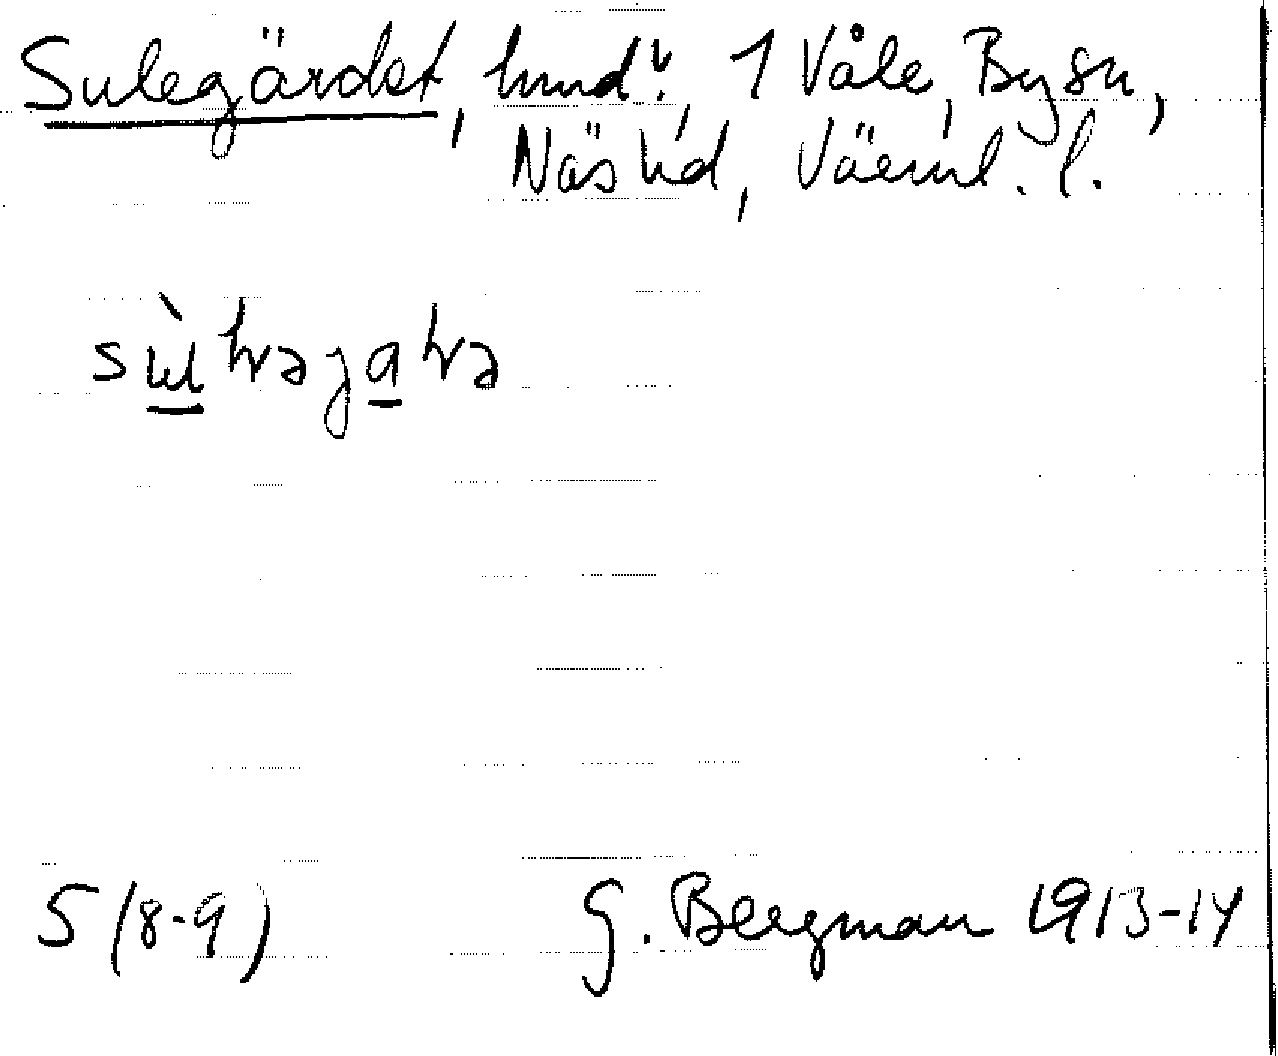 Sulegärdet, hmd., 1 Våle, By sn,
Näs hd, Värml. l.
5 (8-9) G. Bergman 1913-14